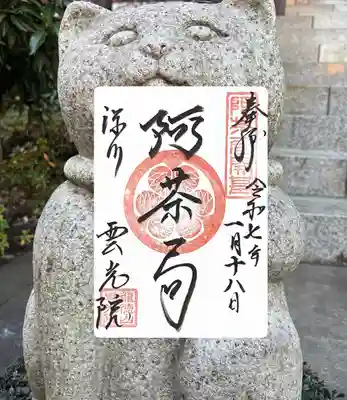 奉拝
令和七年
一月十八日
阿茶局
深川
雲光院